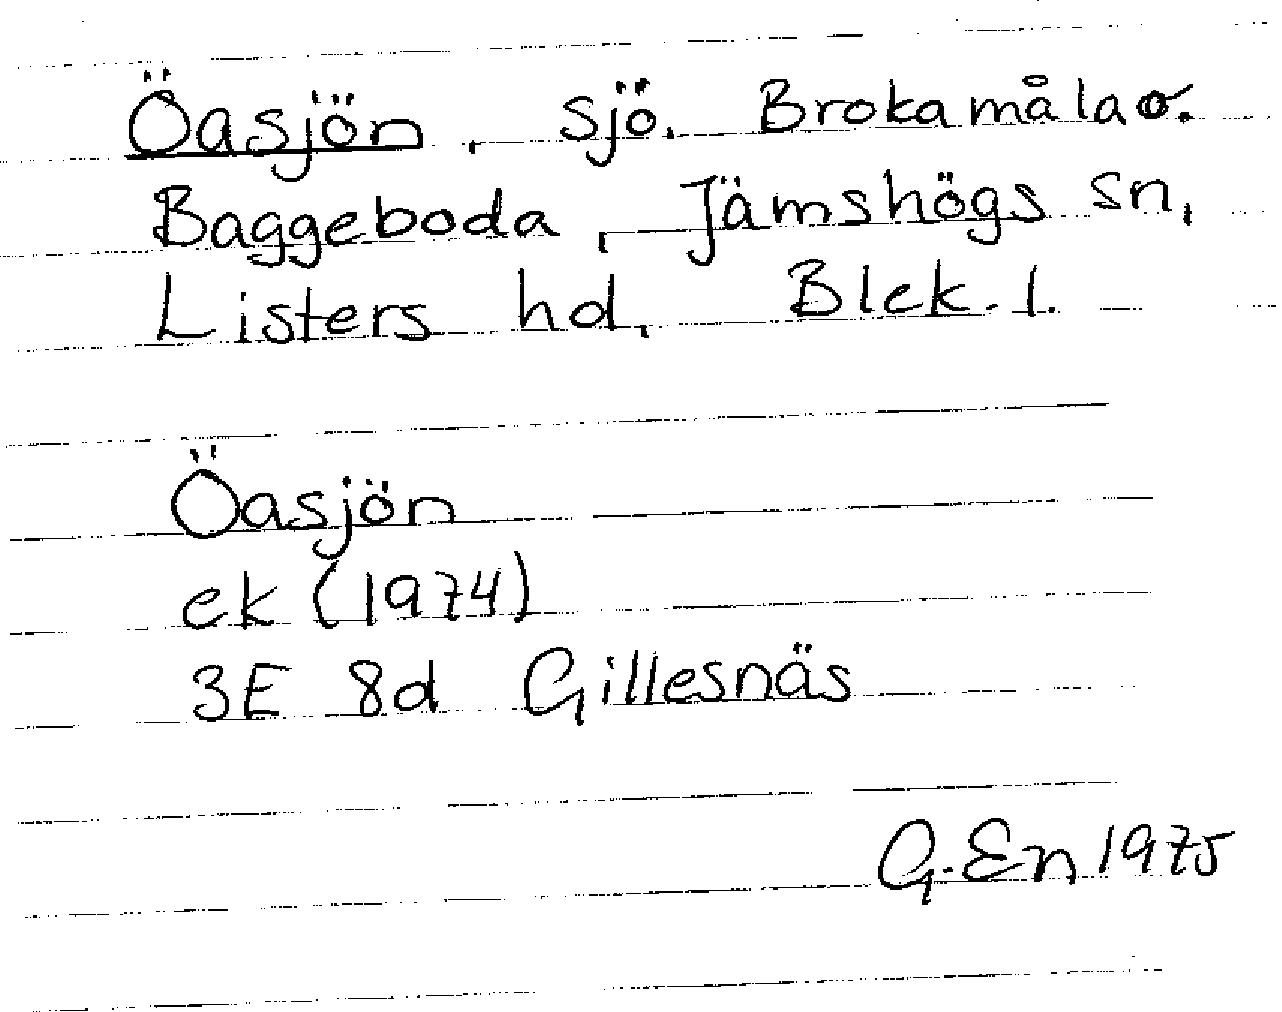 Öasjön, sjö. Brokamåla o.
Baggeboda, Jämshögs sn,
Listers hd, Blek. l.
Öasjön
ek (1974)
3E 8d Gillesnäs
G. En 1975